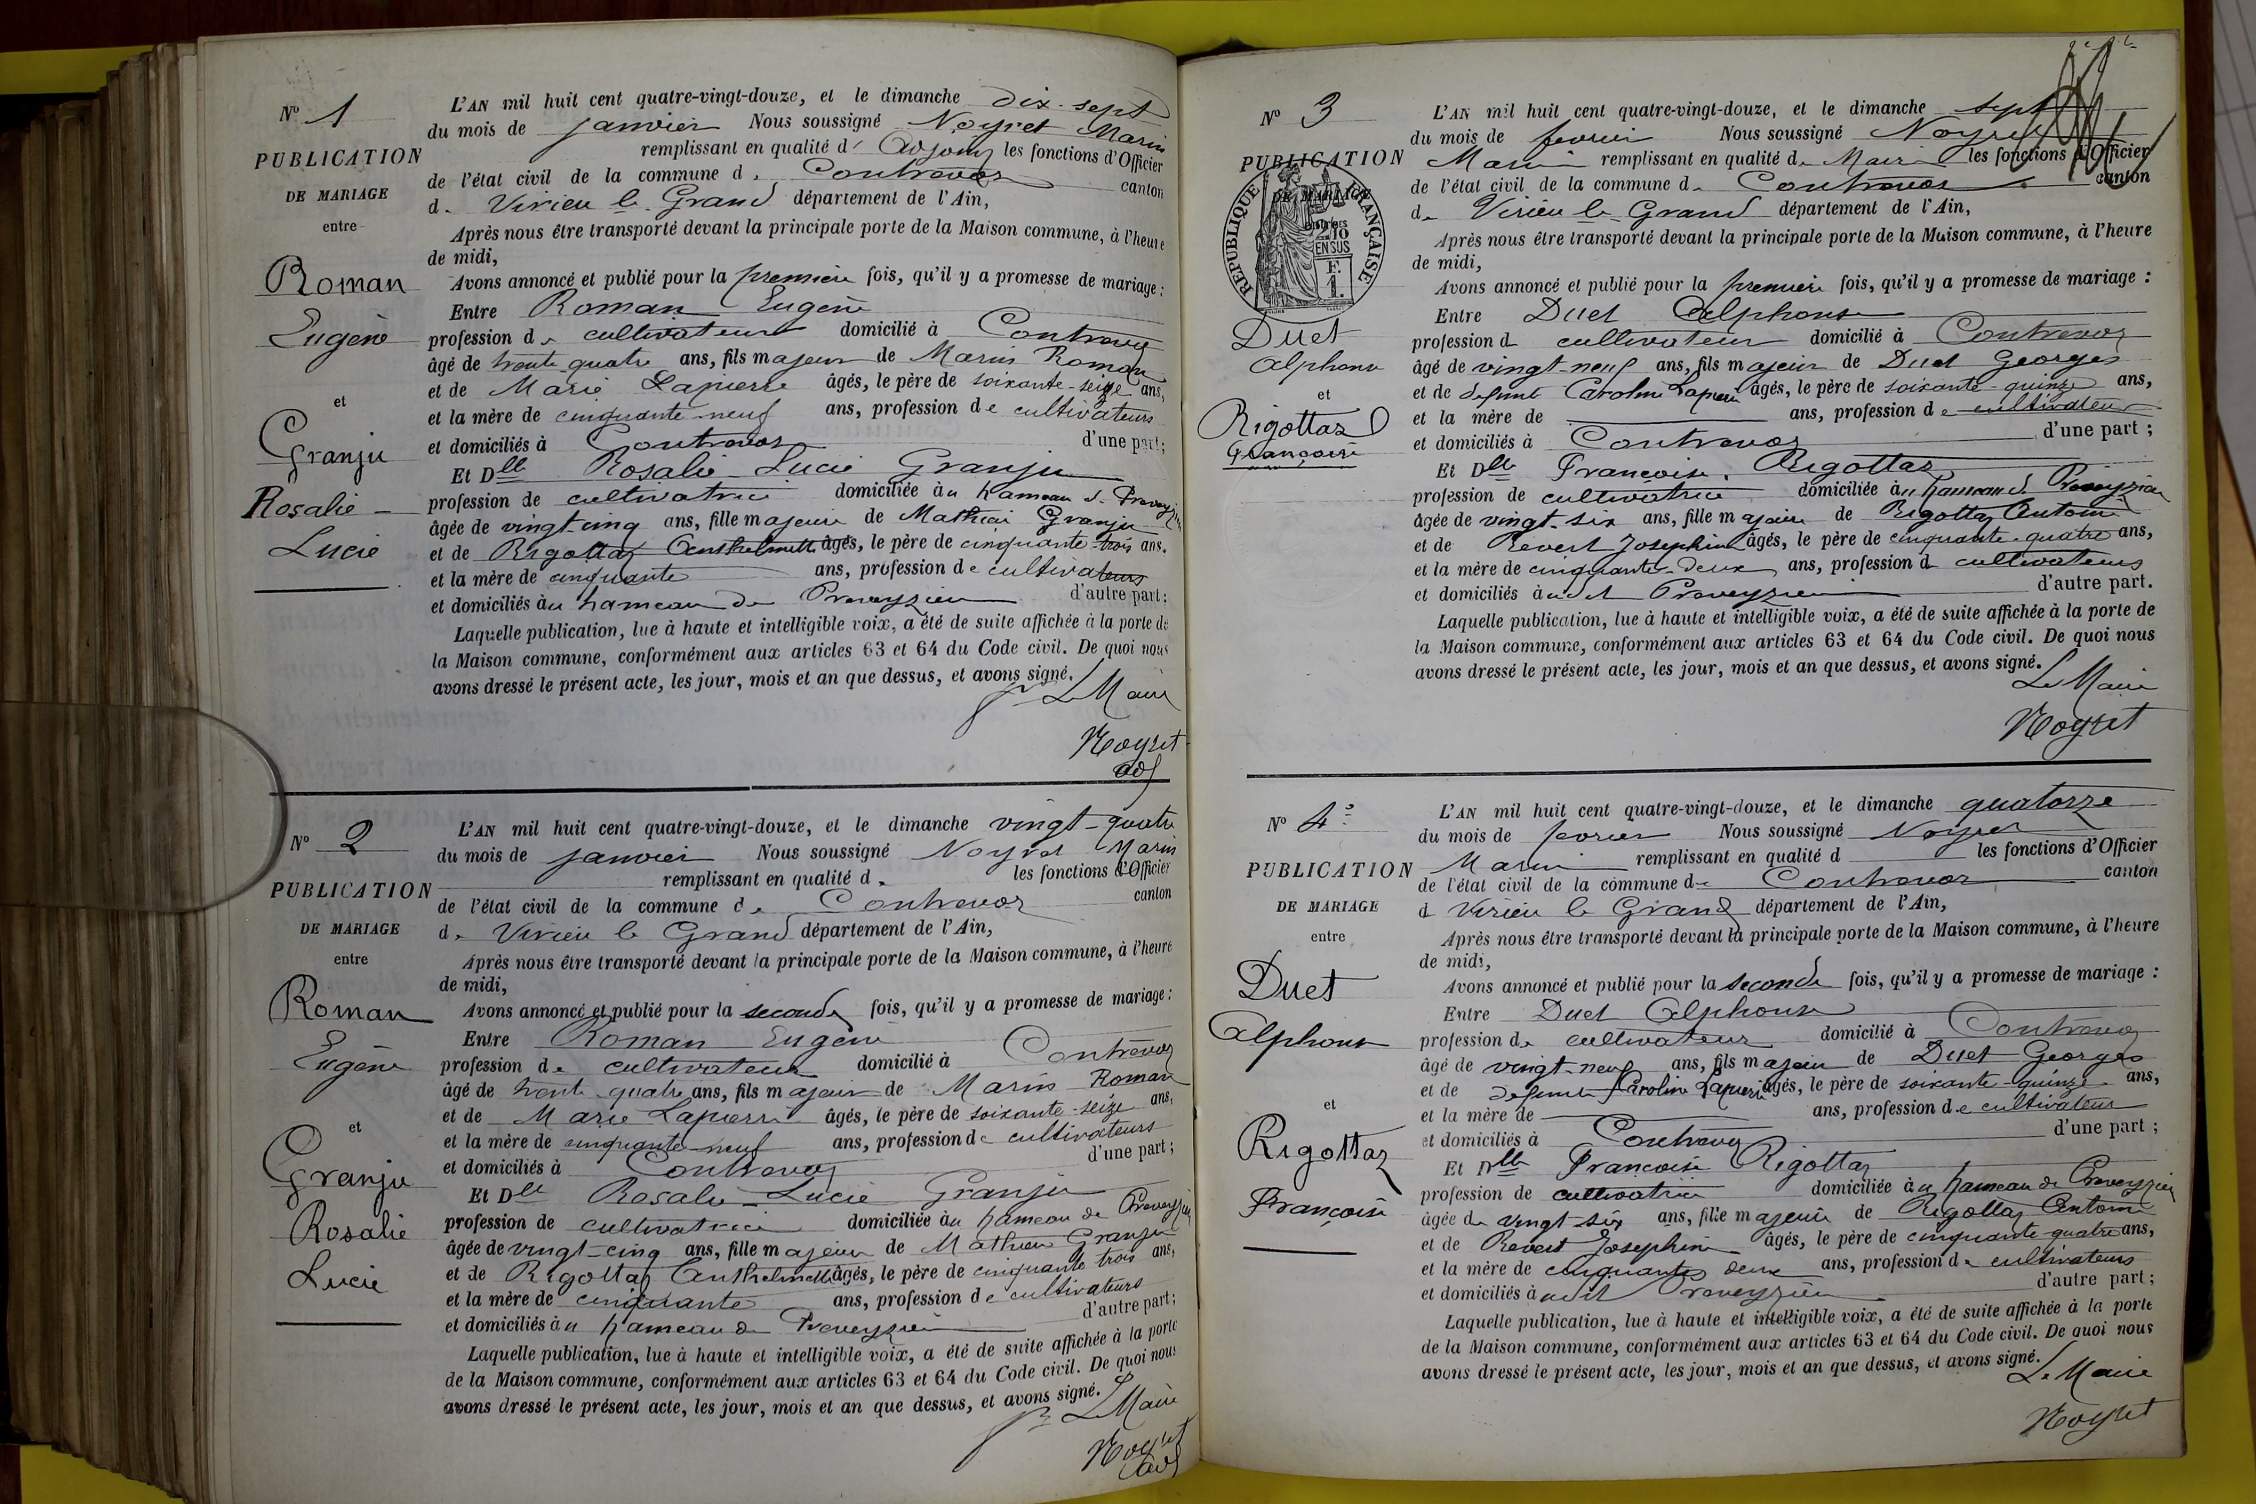 N° 1
PUBLICATION
DE MARIAGE
entre
Roman
Eugène
et
Granju
Rosalie
Lucie
L'AN mil huit cent quatre-vingt-douze, et le dimanche dix-sept
du mois de janvier Nous soussigné Noyret Marin
remplissant en qualité d' Adjoint les fonctions d'Officier
de l'état civil de la commune de Contrevoz canton
de Virieu le Grand département de l'Ain,
Après nous être transporté devant la principale porte de la Maison commune, à l'heure
de midi,
Avons annoncé et publié pour la première fois, qu'il y a promesse de mariage :
Entre Roman Eugène
profession de cultivateur domicilié à Contrevoz
âgé de trente quatre ans, fils majeur de Marin Roman
et de Marie Lapierre âgés, le père de soixante-seize ans,
et la mère de cinquante-neuf ans, profession de cultivateurs
et domiciliés à Contrevoz d'une part;
Et Dlle Rosalie Lucie Granju
profession de cultivatrice domiciliée au hameau de Preveyzieu
âgée de vingt-cinq ans, fille majeure de Mathieu Granju
et de Rigottaz Anthelmette âgés, le père de cinquante-trois ans.
et la mère de cinquante ans, profession de cultivateurs
et domiciliés au hameau de Preveyzieu d'autre part;
Laquelle publication, lue à haute et intelligible voix, a été de suite affichée à la porte de
la Maison commune, conformément aux articles 63 et 64 du Code civil. De quoi nous
avons dressé le présent acte, les jour, mois et an que dessus, et avons signé.
Pr Le Maire
Noyret
adj
N° 2
PUBLICATION
DE MARIAGE
entre
Roman
Eugène
et
Granju
Rosalie
Lucie
L'AN mil huit cent quatre-vingt-douze, et le dimanche vingt-quatre
du mois de janvier Nous soussigné Noyret Marin
remplissant en qualité de les fonctions d'Officier
de l'état civil de la commune de Contrevoz canton
de Virieu le Grand département de l'Ain,
Après nous être transporté devant la principale porte de la Maison commune, à l'heure
de midi,
Avons annoncé et publié pour la seconde fois, qu'il y a promesse de mariage :
Entre Roman Eugène
profession de cultivateur domicilié à Contrevoz
âgé de trente-quatre ans, fils majeur de Marin Roman
et de Marie Lapierre âgés, le père de soixante-seize ans,
et la mère de cinquante-neuf ans, profession de cultivateurs
et domiciliés à Contrevoz d'une part;
Et Dlle Rosalie Lucie Granju
profession de cultivatrice domiciliée au hameau de Preveyzieu
âgée de vingt-cinq ans, fille majeure de Mathieu Granju
et de Rigottaz Anthelmette âgés, le père de cinquante trois ans,
et la mère de cinquante ans, profession de cultivateurs
et domiciliés au hameau de Preveyzieu d'autre part;
Laquelle publication, lue à haute et intelligible voix, a été de suite affichée à la porte
de la Maison commune, conformément aux articles 63 et 64 du Code civil. De quoi nous
avons dressé le présent acte, les jour, mois et an que dessus, et avons signé.
Pr Le Maire
Noyret
adj
N° 3
PUBLICATION
DE MARIAGE
RÉPUBLIQUE FRANÇAISE
2/10
EN SUS
F.
1.
Duet
Alphonse
et
Rigottaz
Françoise
L'AN mil huit cent quatre-vingt-douze, et le dimanche sept
du mois de fevrier Nous soussigné Noyret
Marin remplissant en qualité de Maire les fonctions d'Officier
de l'état civil de la commune de Contrevoz canton
de Virieu le Grand département de l'Ain,
Après nous être transporté devant la principale porte de la Maison commune, à l'heure
de midi,
Avons annoncé et publié pour la premiere fois, qu'il y a promesse de mariage :
Entre Duet Alphonse
profession d cultivateur domicilié à Contrevoz
âgé de vingt-neuf ans, fils majeur de Duet Georges
et de defunte Caroline Lapierre âgés, le père de soixante-quinze ans,
et la mère de ans, profession de cultivateur
et domiciliés à Contrevoz d'une part ;
Et Dlle Françoise Rigottaz
profession de cultivatrice domiciliée au hameau de Preveyzieu
âgée de vingt-six ans, fille majeure de Rigottaz Antoine
et de Revert Josephine âgés, le père de cinquante-quatre ans,
et la mère de cinquante-deux ans, profession d cultivateurs
et domiciliés audit Preveyzieu d'autre part.
Laquelle publication, lue à haute et intelligible voix, a été de suite affichée à la porte de
la Maison commune, conformément aux articles 63 et 64 du Code civil. De quoi nous
avons dressé le présent acte, les jour, mois et an que dessus, et avons signé.
Le Maire
Noyret
N° 4
PUBLICATION
DE MARIAGE
entre
Duet
Alphonse
et
Rigottaz
Françoise
L'AN mil huit cent quatre-vingt-douze, et le dimanche quatorze
du mois de fevrier Nous soussigné Noyret
Marin remplissant en qualité d les fonctions d'Officier
de l'état civil de la commune de Contrevoz canton
d Virieu le Grand département de l'Ain,
Après nous être transporté devant la principale porte de la Maison commune, à l'heure
de midi,
Avons annoncé et publié pour la seconde fois, qu'il y a promesse de mariage :
Entre Duet Alphonse
profession de cultivateur domicilié à Contrevoz
âgé de vingt-neuf ans, fils majeur de Duet Georges
et de defunte Caroline Lapierre âgés, le père de soixante-quinze ans,
et la mère de ans, profession de cultivateur
et domiciliés à Contrevoz d'une part ;
Et Dlle Françoise Rigottaz
profession de cultivatrice domiciliée au hameau de Preveyzieu
âgée de vingt-six ans, fille majeure de Rigottaz Antoine
et de Revert Josephine âgés, le père de cinquante-quatre ans,
et la mère de cinquante deux ans, profession de cultivateurs
et domiciliés audit Preveyzieu d'autre part ;
Laquelle publication, lue à haute et intelligible voix, a été de suite affichée à la porte
de la Maison commune, conformément aux articles 63 et 64 du Code civil. De quoi nous
avons dressé le présent acte, les jour, mois et an que dessus, et avons signé.
Le Maire
Noyret